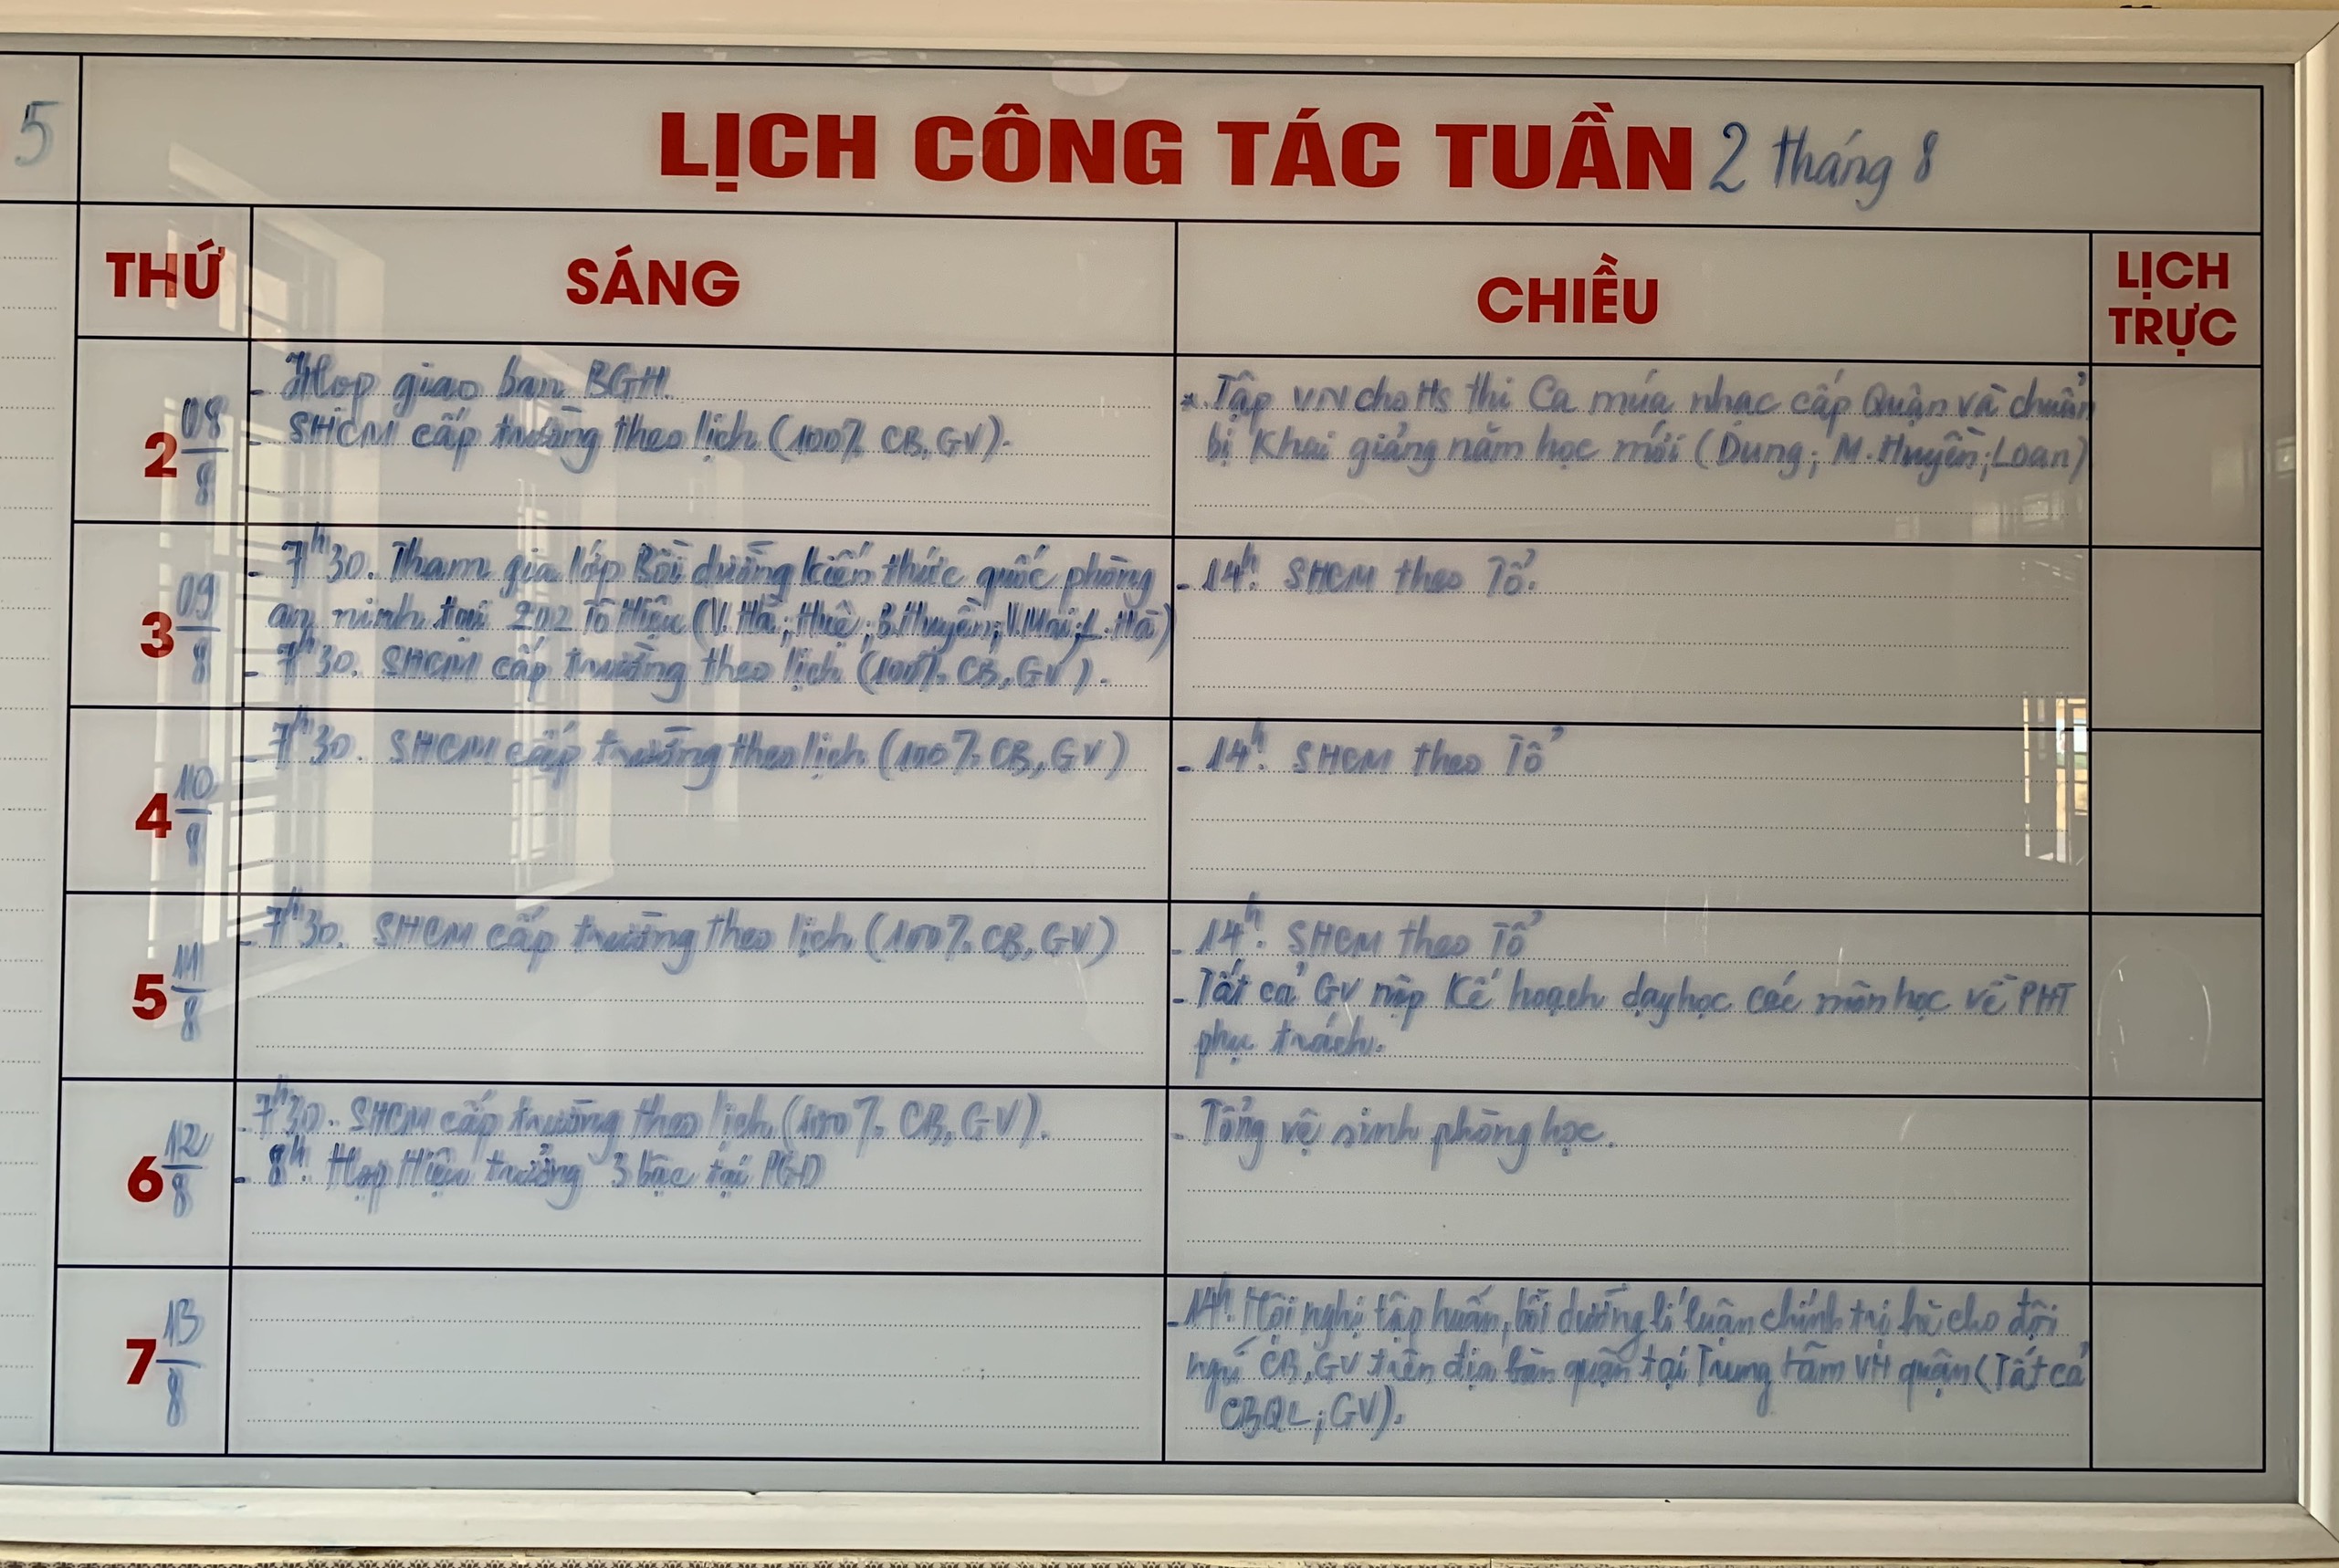 5
LỊCH CÔNG TÁC TUẦN 2 tháng 8
THỨ
SÁNG
CHIỀU
LỊCH
TRỰC
2 08/8
- Họp giao ban BGH.
- SHCM cấp trường theo lịch (100% CB, GV).
* Tập VN cho Hs thi Ca múa nhạc cấp Quận và chuẩn
bị Khai giảng năm học mới (Dung; M. Huyền; Loan)
3 09/8
- 7h30. Tham gia lớp Bồi dưỡng kiến thức quốc phòng
an ninh tại 202 Tô Hiệu (V. Hà; Huệ; B. Huyền; V. Mai; L. Hà)
- 7h30. SHCM cấp trường theo lịch (100% CB, GV).
- 14h. SHCM theo Tổ.
4 10/8
- 7h30. SHCM cấp trường theo lịch (100% CB, GV)
- 14h. SHCM theo Tổ
5 11/8
- 7h30. SHCM cấp trường theo lịch (100% CB, GV)
- 14h. SHCM theo Tổ
- Tất cả GV nộp Kế hoạch dạy học các môn học về PHT
phụ trách.
6 12/8
- 7h30. SHCM cấp trường theo lịch (100% CB, GV).
- 8h. Họp Hiệu trưởng 3 bậc tại PGD
- Tổng vệ sinh phòng học.
7 13/8
- 14h. Hội nghị tập huấn, bồi dưỡng lí luận chính trị hè cho đội
ngũ CB, GV trên địa bàn quận tại Trung tâm VH quận (Tất cả
CBQL; GV).